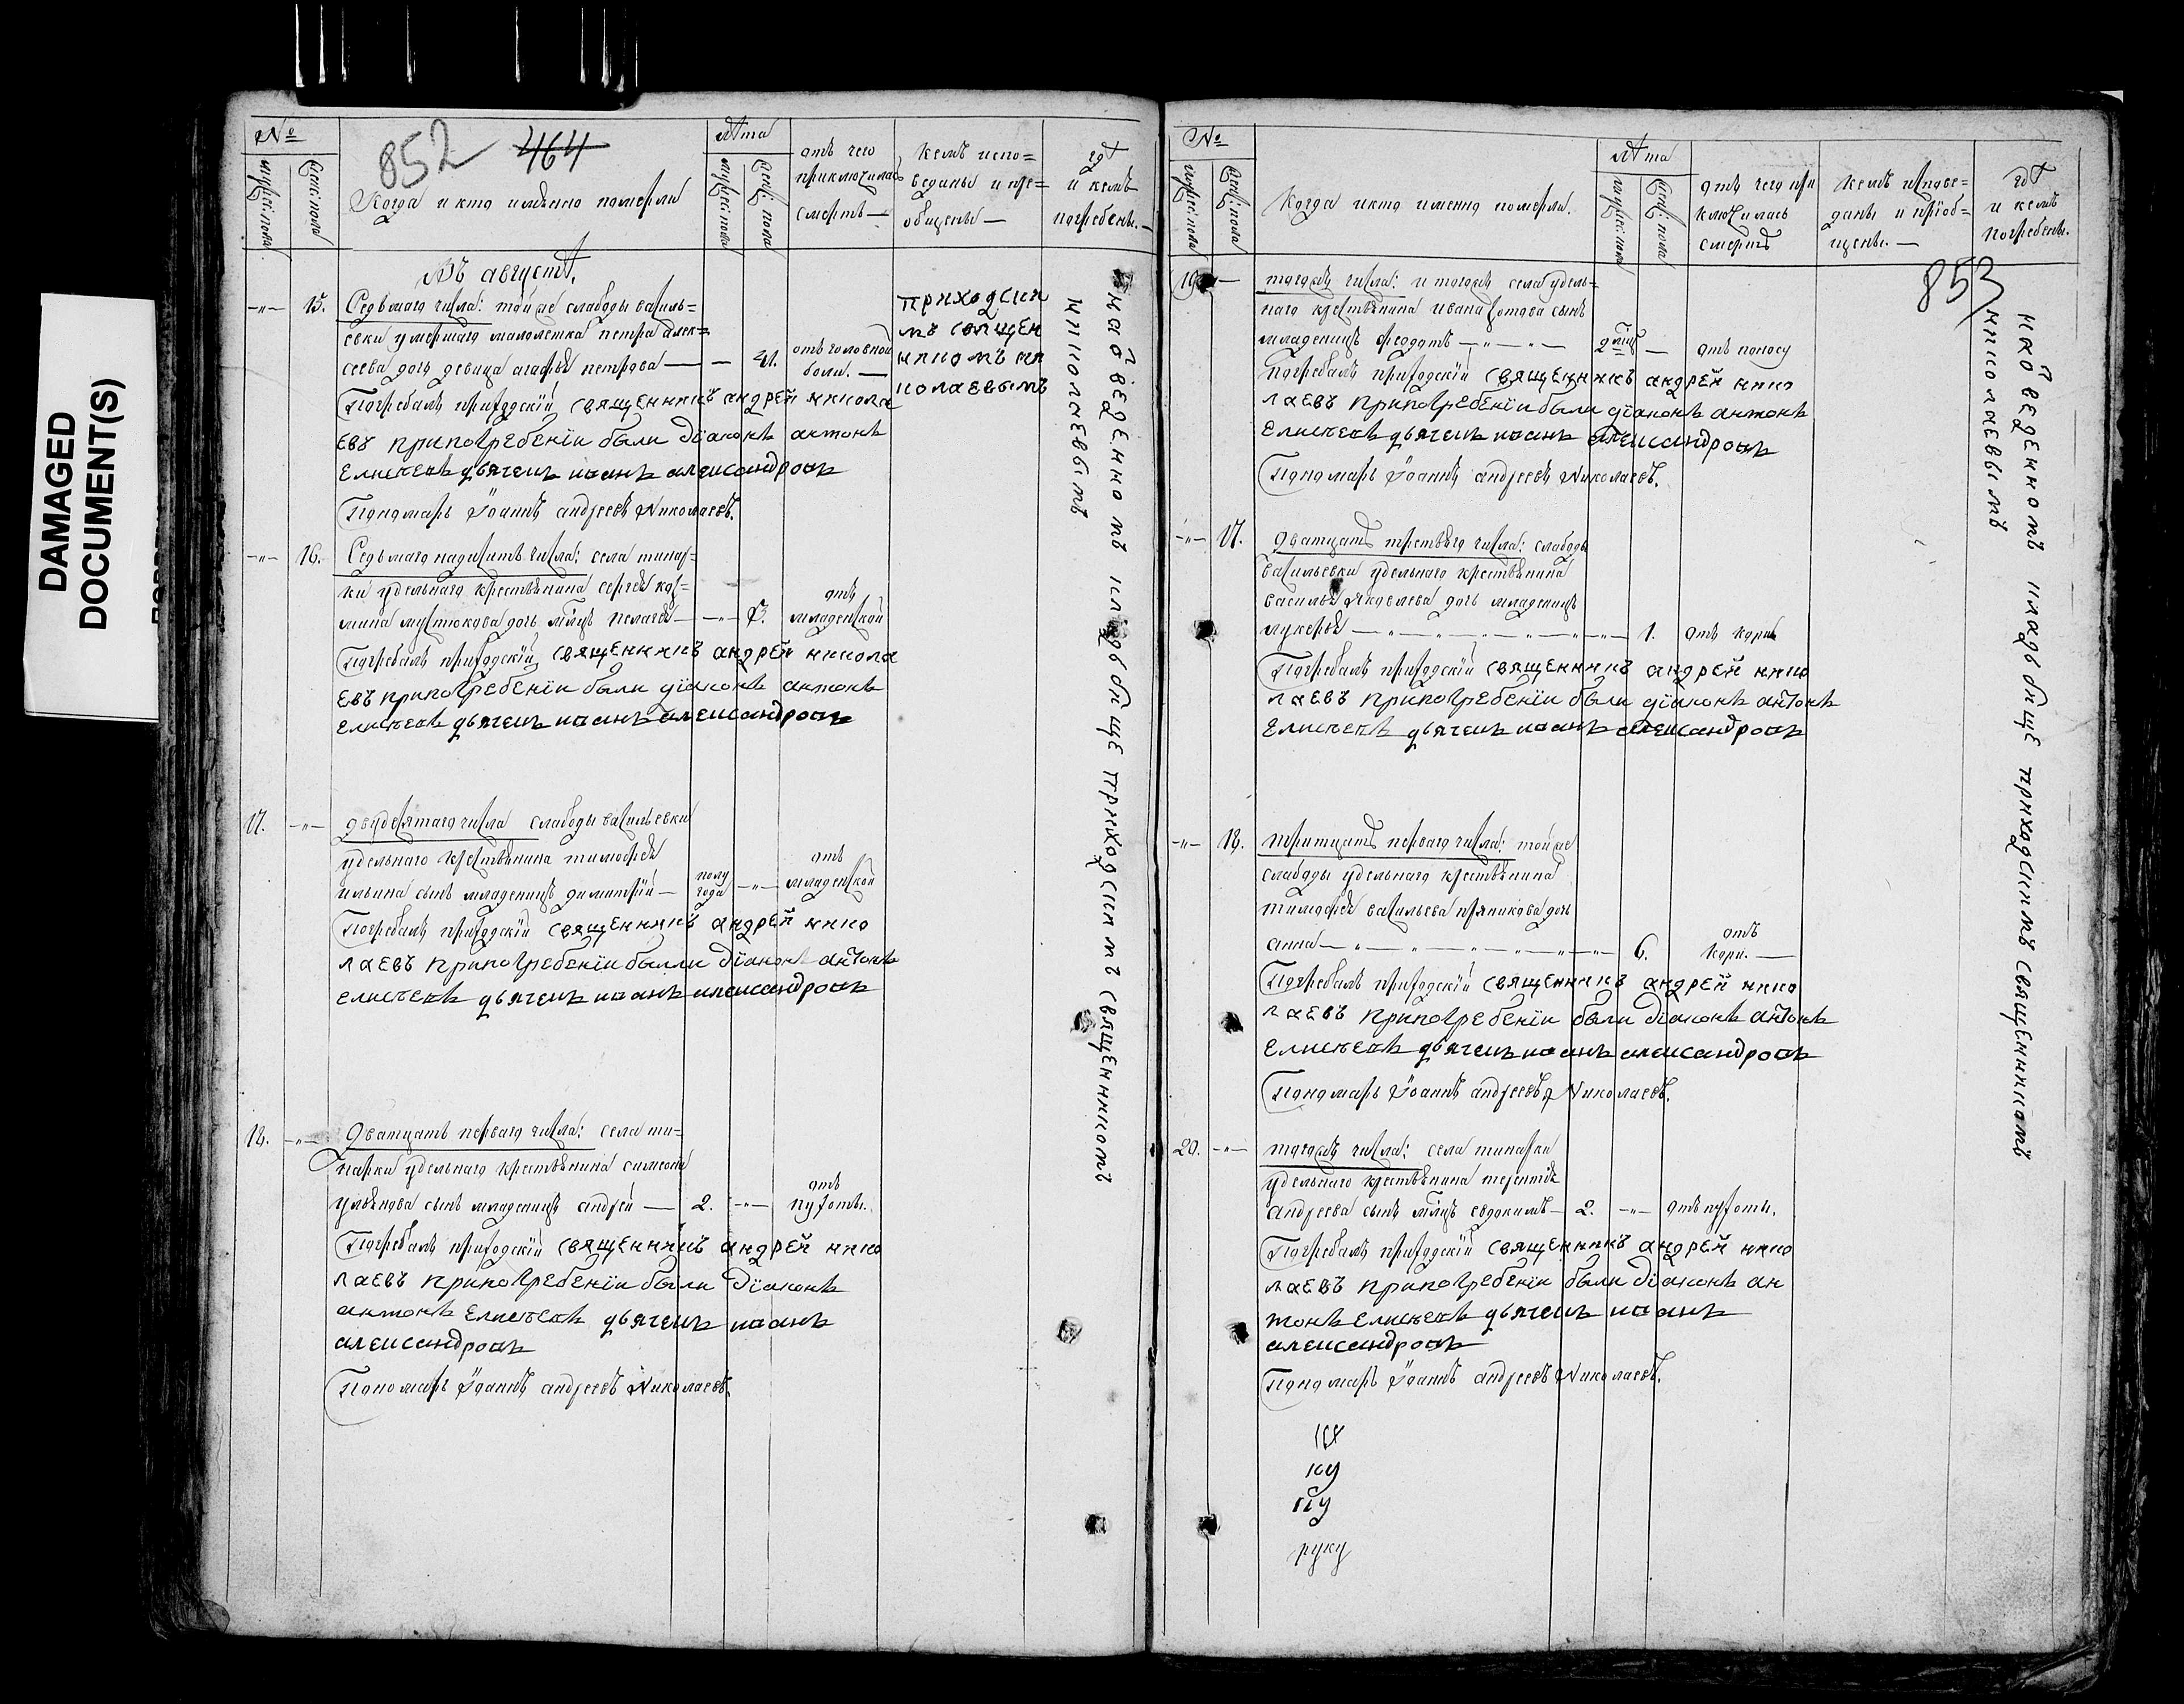 DAMAGED
DOCUMENT(S)
852 464
№
мужескі: пола
женскі: пола
Когда и кто имянно померли
лѣта
мужескі: пола
женскі: пола
отъ чего
приключилась
смерть —
кемъ испо=
веданы и прі=
общены —
гдѣ
и кемъ
погребены. —
Въ августѣ.
—„— 15.
Седьмаго числа: той же слабоды василь=
евки умершаго малолетка петра алек=
сеева дочь девица агафья петрова — — 41.
отъ головной
боли. —
приходски
мъ священ
никомъ ни
колаевымъ
Погребалъ приходскій священникъ андрей никола
евъ припогребеніи были діаконъ антонъ
Елисеевъ дьячекъ иоанъ александровъ
Пономарь Іоаннъ андреевъ Николаевъ.
—„— 16.
Седьмаго надцать числа: села тинар=
ки удельнаго крестьянина сергея коз=
мина мустюкова дочь млцъ пелагея —
отъ
младенской
Погребалъ приходскій священникъ андрей никола
евъ припогребеніи были діаконъ антонъ
Елисеевъ дьячекъ иоанъ александровъ
17. —„—
двудесятаго числа слабоды васильевки
удельнаго крестьянина тимофея
ильина сынъ младенецъ димитрій —
полу
года —„—
отъ
младенской
Погребалъ приходскій священникъ андрей нико
лаевъ припогребеніи были діаконъ антонъ
елисеевъ дьячекъ иоанъ александровъ
18. —„—
Дватцать перваго числа: села ти=
нарки удельнаго крестьянина симеона
ульянова сынъ младенецъ андрей — 2. —„—
отъ
сухоты.
Погребалъ приходскій священникъ андрей нико
лаевъ припогребеніи были діаконъ
антонъ Елисеевъ дьячекъ иоанъ
александровъ
Пономарь Іоаннъ андреевъ Николаевъ.
на веденномъ кладбище приходскимъ священникомъ
николаевымъ
853
№
мужескі: пола
женскі: пола
Когда икто именно померли.
лѣта
мужескі: пола
женскі: пола
отъ чего при
ключилась
смерть
кемъ испове=
даны и пріоб=
щены. —
гдѣ
и кемъ
погребены.
19 —
тогожъ числа: и тогожъ села удель=
наго крестьянина ивана сотова сынъ
младенецъ феодотъ —„—„—
отъ поносу
Погребалъ приходскій священникъ андрей нико
лаевъ припогребеніи были діаконъ антонъ
Елисеевъ дьячекъ иоанъ александровъ
Пономарь Іоаннъ андреевъ Николаевъ.
—„— 17.
дватцать третьяго числа: слабоды
васильевки удельнаго крестьянина
василья яковлева дочь младенецъ
лукерья —„—„—„—„— 1. отъ кори
Погребалъ приходскій священникъ андрей нико
лаевъ припогребеніи были діаконъ антонъ
Елисеевъ дьячекъ иоанъ александровъ
—„— 18.
тритцать перваго числа: той же
слабоды удельнаго крестьянина
тимофея васильева пряникова дочь
анна —„—„—„—„— 6.
отъ
кори. —
Погребалъ приходскій священникъ андрей нико
лаевъ припогребеніи были діаконъ антонъ
Елисеевъ дьячекъ иоанъ александровъ
Пономарь Іоаннъ андреевъ Николаевъ.
20. —„—
тогожъ числа: села тинарки
удельнаго крестьянина терентья
андреева сынъ млцъ евдокимъ — 2. —„— отъ сухоты.
Погребалъ приходскій священникъ андрей нико
лаевъ припогребеніи были діаконъ ан
тонъ Елисеевъ дьячекъ иоанъ
александровъ
Пономарь Іоаннъ андреевъ Николаевъ.
ку
руку
на веденномъ кладбище приходскимъ священникомъ
николаевымъ